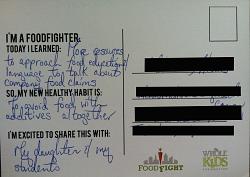 I'M A FOODFIGHTER:
TODAY I LEARNED: More resources
to approach food education/
language to talk about
company food claims
SO, MY NEW HEALTHY HABIT IS:
To avoid food with
additives altogether
I'M EXCITED TO SHARE THIS WITH:
My daughter & my
students
FOODFIGHT
WHOLE
KIDS
FOUNDATION